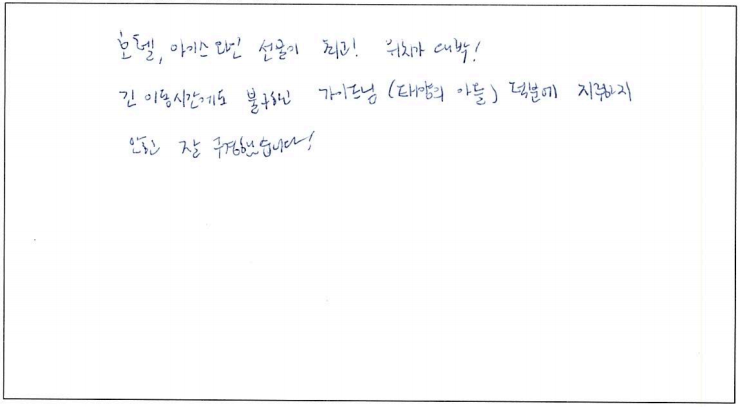 호텔, 아이스와인 선물이 최고! 위치가 대박!
긴 이동시간에도 불구하고 가이드님 (태양의 아들) 덕분에 지루하지
않고 잘 구경했습니다!